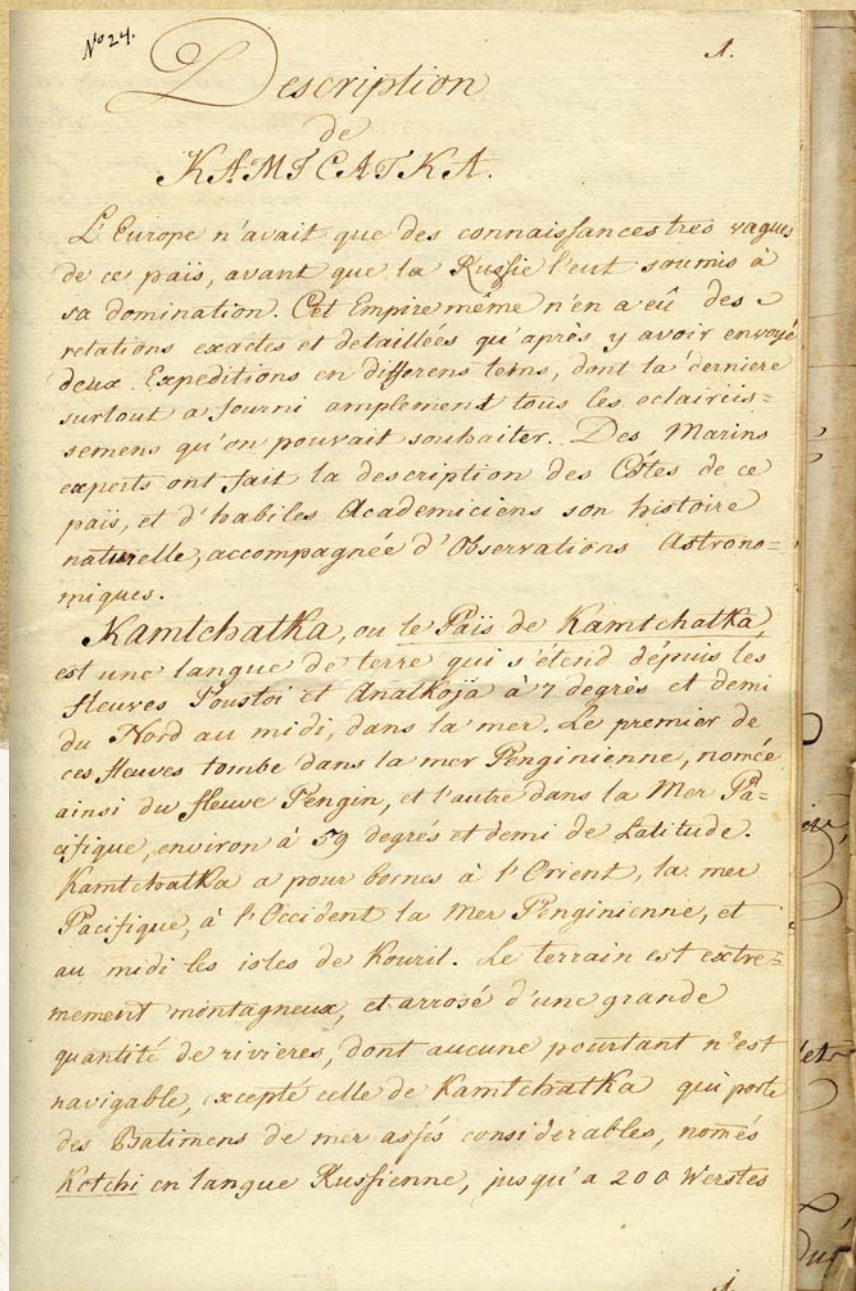 N° 24.
1.
Description
de
KAMTCATKA.
L'Europe n'avait que des connaissances tres vagues
de ce païs, avant que la Russie l'eut soumis à
sa domination. Cet Empire même n'en a eû des
relations exactes et detaillées qu'après y avoir envoyé
deux Expeditions en differens tems, dont la derniere
surtout a fourni amplement tous les eclaircis=
semens qu'on pouvait souhaiter. Des Marins
experts ont fait la description des Côtes de ce
païs, et d'habiles Academiciens son histoire
naturelle, accompagnée d'Observations Astrono=
miques.
Kamtchatka, ou le Païs de Kamtchatka,
est une langue de terre qui s'étend dépuis les
fleuves Poustoi et Analkoja à 7 degrés et demi
du Nord au midi, dans la mer. Le premier de
ces fleuves tombe dans la mer Penginienne, nomée
ainsi du fleuve Pengin, et l'autre dans la Mer Pa=
cifique, environ à 59 degrés et demi de Latitude.
Kamtchatka a pour bornes à l'Orient, la mer
Pacifique, à l'Occident la Mer Penginienne, et
au midi les isles de Kouril. Le terrain est extre=
mement montagneux, et arrosé d'une grande
quantité de rivieres, dont aucune pourtant n'est
navigable, excepté celle de Kamtchatka qui porte
des Batimens de mer assés considerables, només
Kotchi en langue Russienne, jusqu'a 200 Werstes